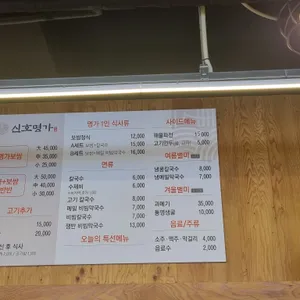 신호명가
명가보쌈
대 40,000
중 35,000
소 25,000
대 50,000
중 40,000
소 30,000
고기추가
15,000
20,000
명가 1인 식사류
보쌈정식 12,000
A세트 15,000
B세트 16,000
면류
칼국수 6,000
수제비 6,000
고기 칼국수 8,000
메밀 비빔막국수 7,000
비빔칼국수 7,000
쟁반 비빔막국수 13,000
오늘의 특선메뉴
사이드메뉴
해물파전 15,000
고기만두 5,000
여름별미
냉콩칼국수 8,000
냉메밀막국수 7,000
겨울별미
과메기 35,000
통영생굴 10,000
음료/주류
소주 · 맥주 · 막걸리 4,000
음료수 2,000